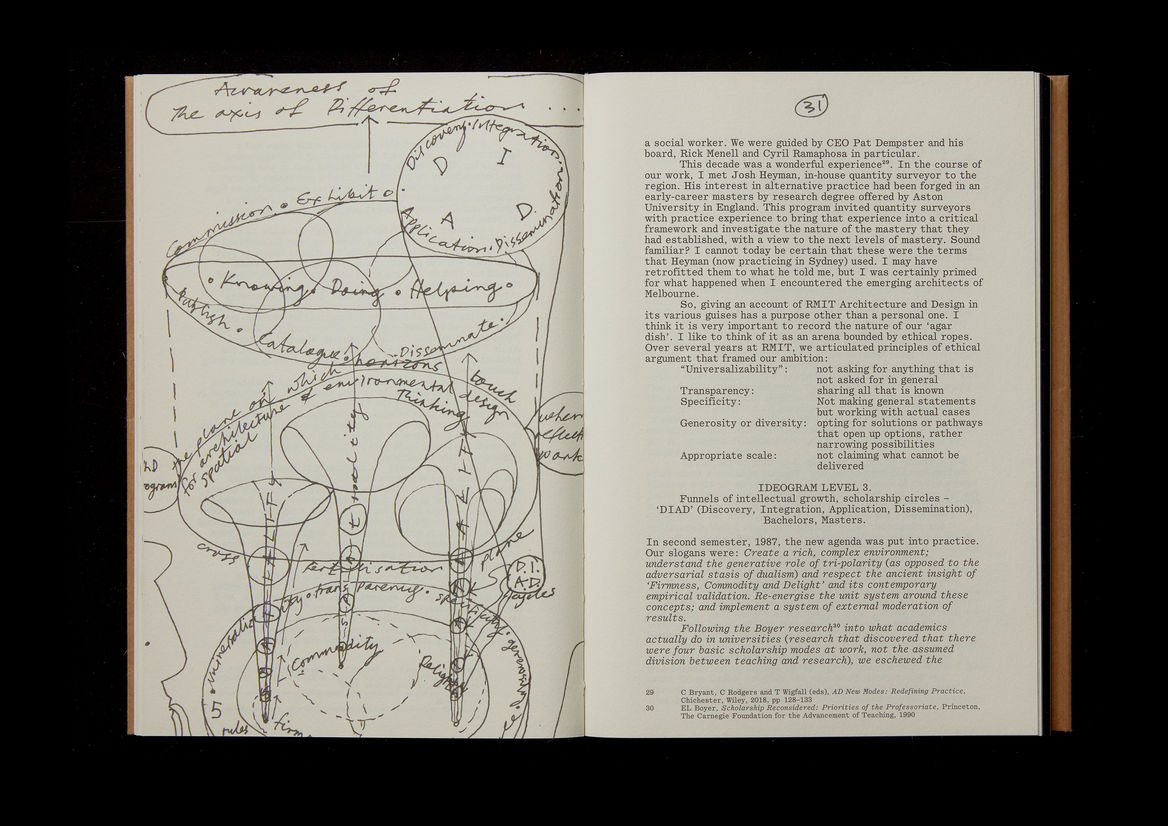 Awareness of
The axis of Differentiation ...
Discovery. Integration.
D I
A D
Application. Dissemination
Commission. Exhibit
Knowing. Doing. Helping.
Publish.
Catalogue. Disseminate.
the plane on which horizons touch
for architecture & environmental design
spatial thinking
where
reflect
work
cross fertilisation plane
D.I.
A.D.
cycles
transparency.
specificity.
Commodity
Delight
5
rules
31
a social worker. We were guided by CEO Pat Dempster and his
board, Rick Menell and Cyril Ramaphosa in particular.
This decade was a wonderful experience²⁹. In the course of
our work, I met Josh Heyman, in-house quantity surveyor to the
region. His interest in alternative practice had been forged in an
early-career masters by research degree offered by Aston
University in England. This program invited quantity surveyors
with practice experience to bring that experience into a critical
framework and investigate the nature of the mastery that they
had established, with a view to the next levels of mastery. Sound
familiar? I cannot today be certain that these were the terms
that Heyman (now practicing in Sydney) used. I may have
retrofitted them to what he told me, but I was certainly primed
for what happened when I encountered the emerging architects of
Melbourne.
So, giving an account of RMIT Architecture and Design in
its various guises has a purpose other than a personal one. I
think it is very important to record the nature of our ‘agar
dish’. I like to think of it as an arena bounded by ethical ropes.
Over several years at RMIT, we articulated principles of ethical
argument that framed our ambition:
“Universalizability”: not asking for anything that is
not asked for in general
Transparency: sharing all that is known
Specificity: Not making general statements
but working with actual cases
Generosity or diversity: opting for solutions or pathways
that open up options, rather
narrowing possibilities
Appropriate scale: not claiming what cannot be
delivered
IDEOGRAM LEVEL 3.
Funnels of intellectual growth, scholarship circles –
‘DIAD’ (Discovery, Integration, Application, Dissemination),
Bachelors, Masters.
In second semester, 1987, the new agenda was put into practice.
Our slogans were: Create a rich, complex environment;
understand the generative role of tri-polarity (as opposed to the
adversarial stasis of dualism) and respect the ancient insight of
‘Firmness, Commodity and Delight’ and its contemporary
empirical validation. Re-energise the unit system around these
concepts; and implement a system of external moderation of
results.
Following the Boyer research³⁰ into what academics
actually do in universities (research that discovered that there
were four basic scholarship modes at work, not the assumed
division between teaching and research), we eschewed the
29 C Bryant, C Rodgers and T Wigfall (eds), AD New Modes: Redefining Practice,
Chichester, Wiley, 2018, pp 128–133
30 EL Boyer, Scholarship Reconsidered: Priorities of the Professoriate, Princeton,
The Carnegie Foundation for the Advancement of Teaching, 1990